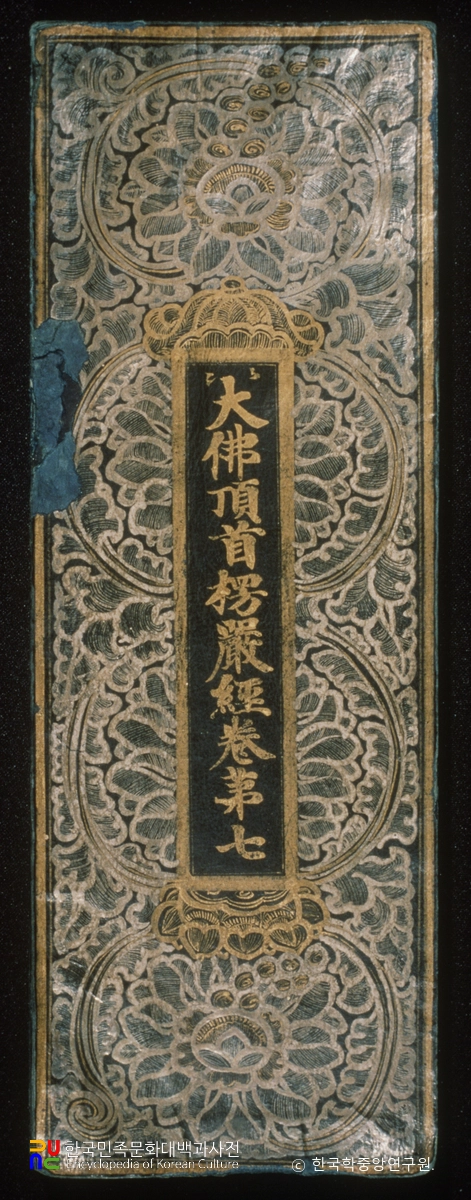 大佛頂首楞嚴經卷第七
한국민족문화대백과사전
Encyclopedia of Korean Culture
© 한국학중앙연구원